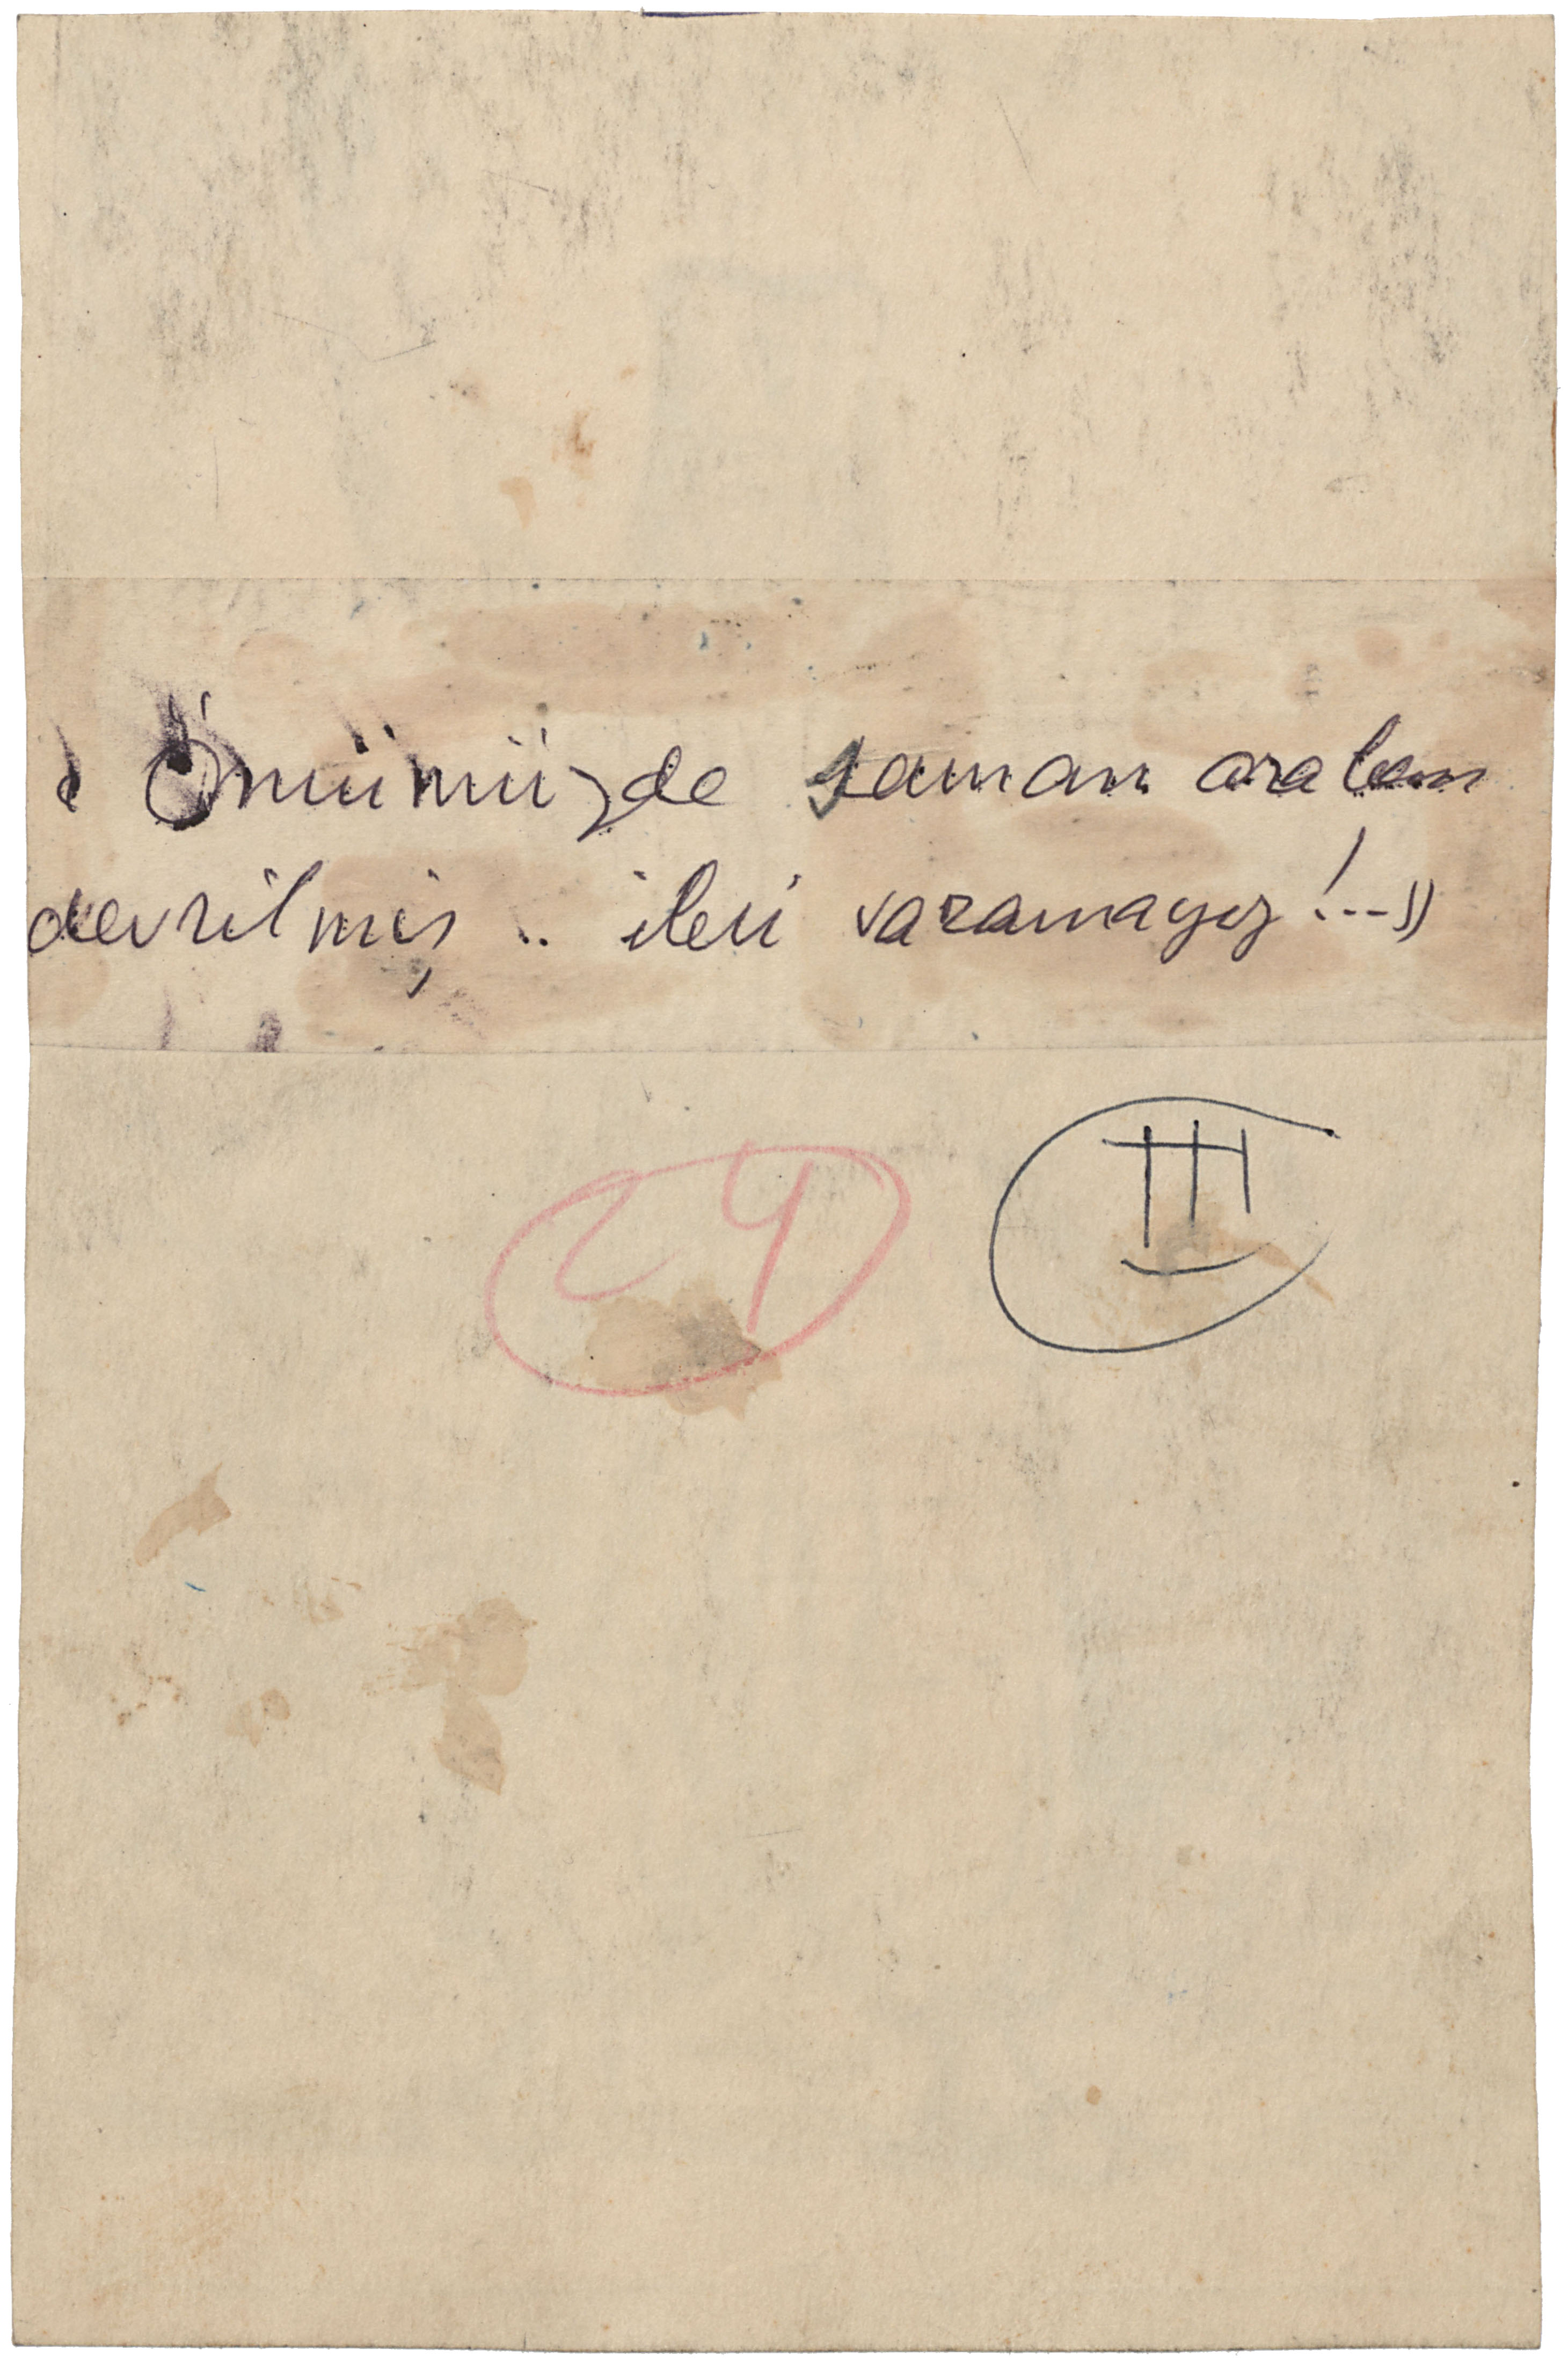 Önümüzde saman arabası
devrilmiş .. ileri varamayız!..."
24 III